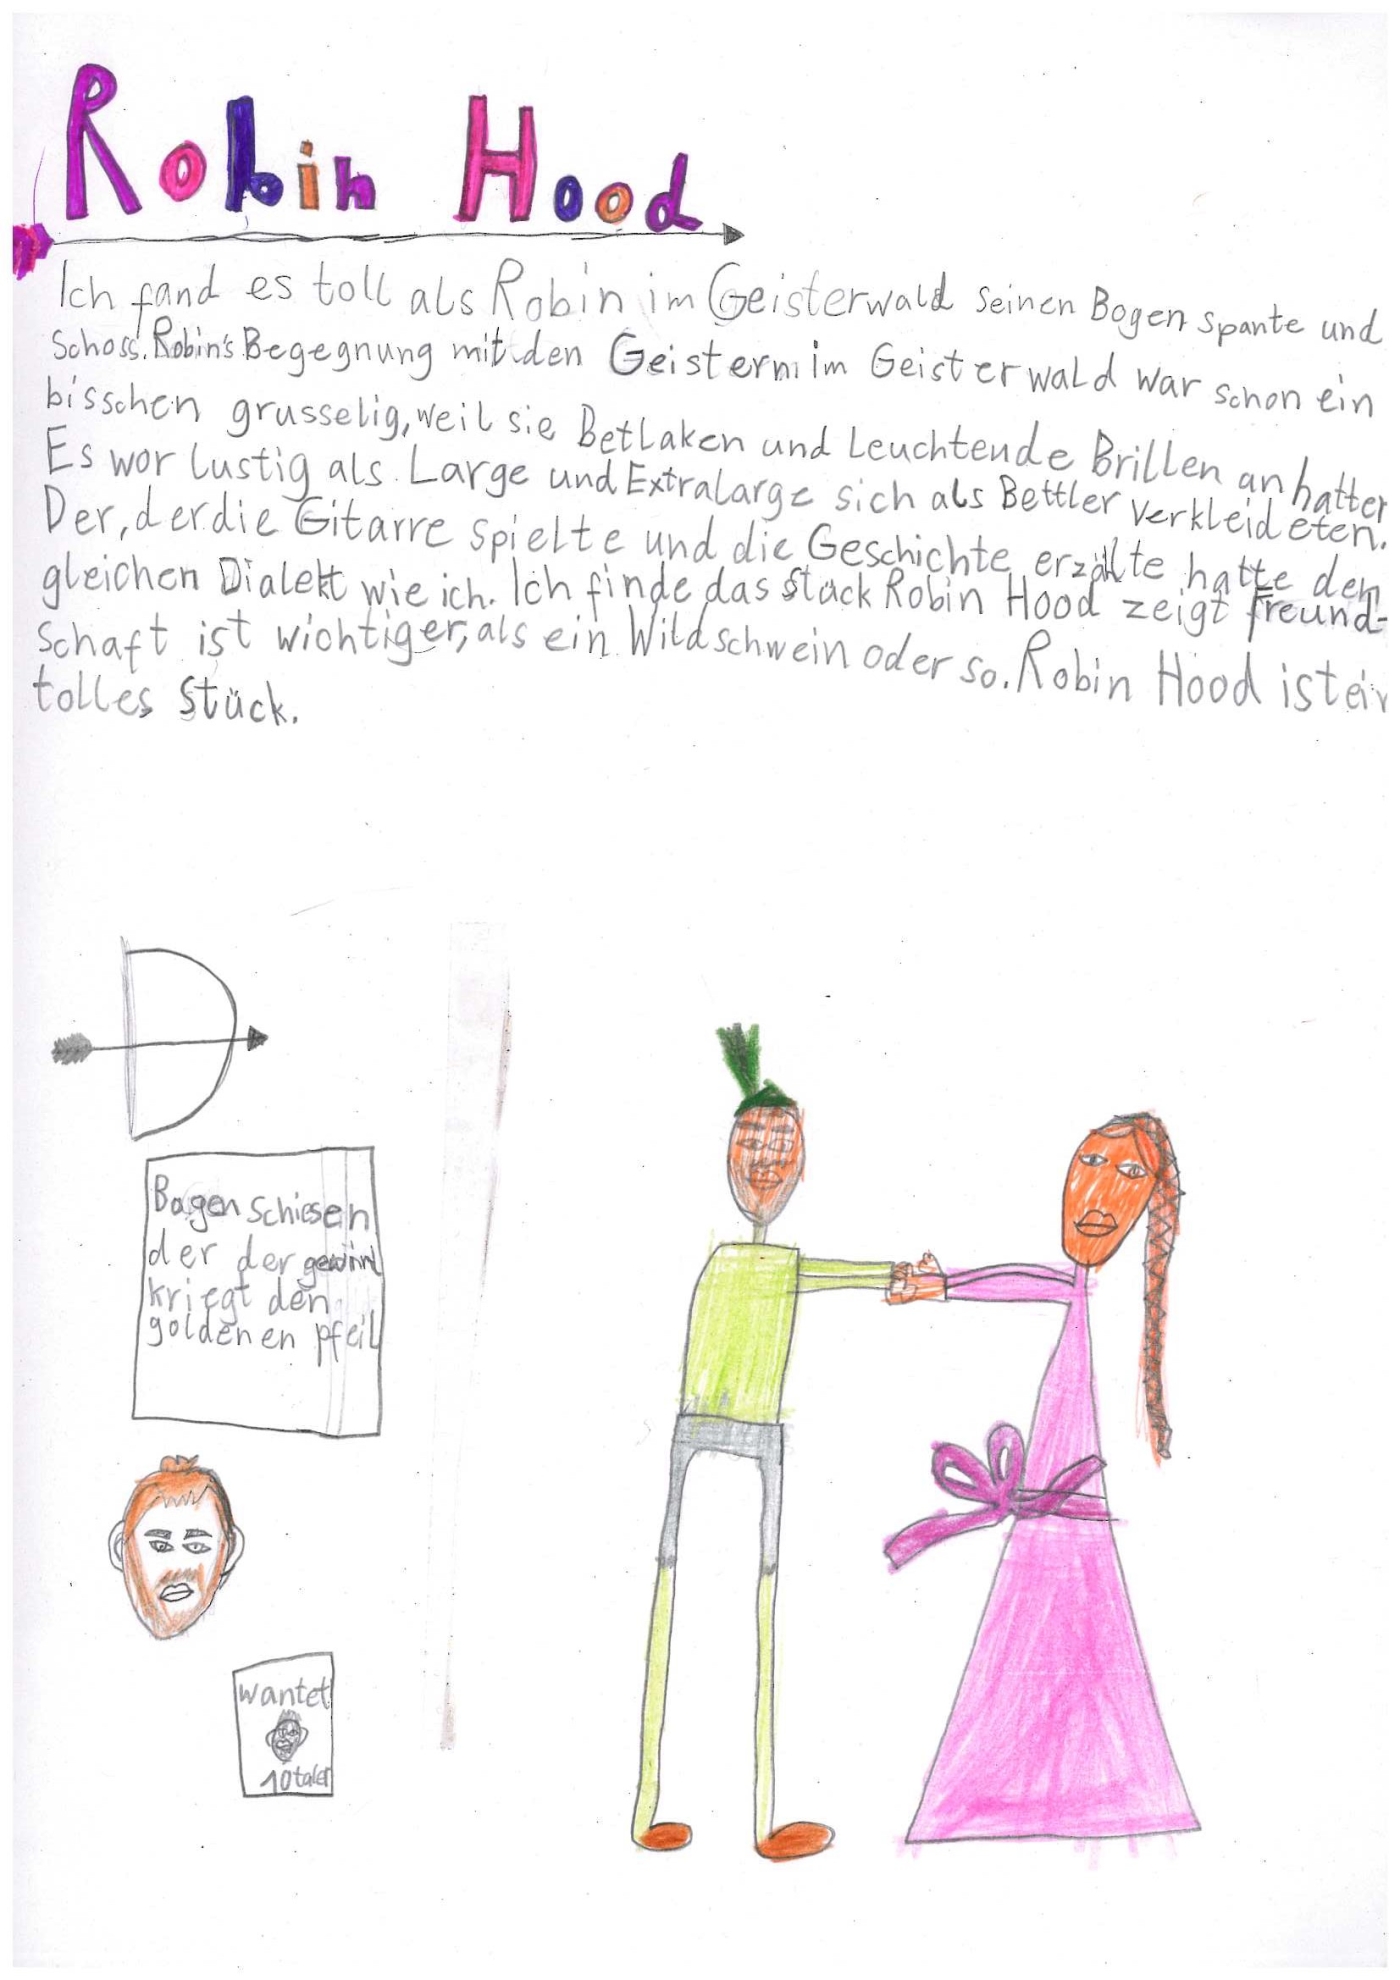 Robin Hood
Ich fand es toll als Robin im Geisterwald seinen Bogen spante und
schoss. Robin's Begegnung mit den Geistern im Geisterwald war schon ein
bisschen grusselig, weil sie Betlaken und Leuchtende Brillen an hatten
Es war lustig als Large und Extralarge sich als Bettler verkleideten.
Der, der die Gitarre spielte und die Geschichte erzälte hatte den
gleichen Dialekt wie ich. Ich finde das stück Robin Hood zeigt freund-
schaft ist wichtiger, als ein Wildschwein oder so. Robin Hood ist ein
tolles Stück.
Bogen schiesen
der der gewinnt
kriegt den
goldenen pfeil
wantet
10 taler